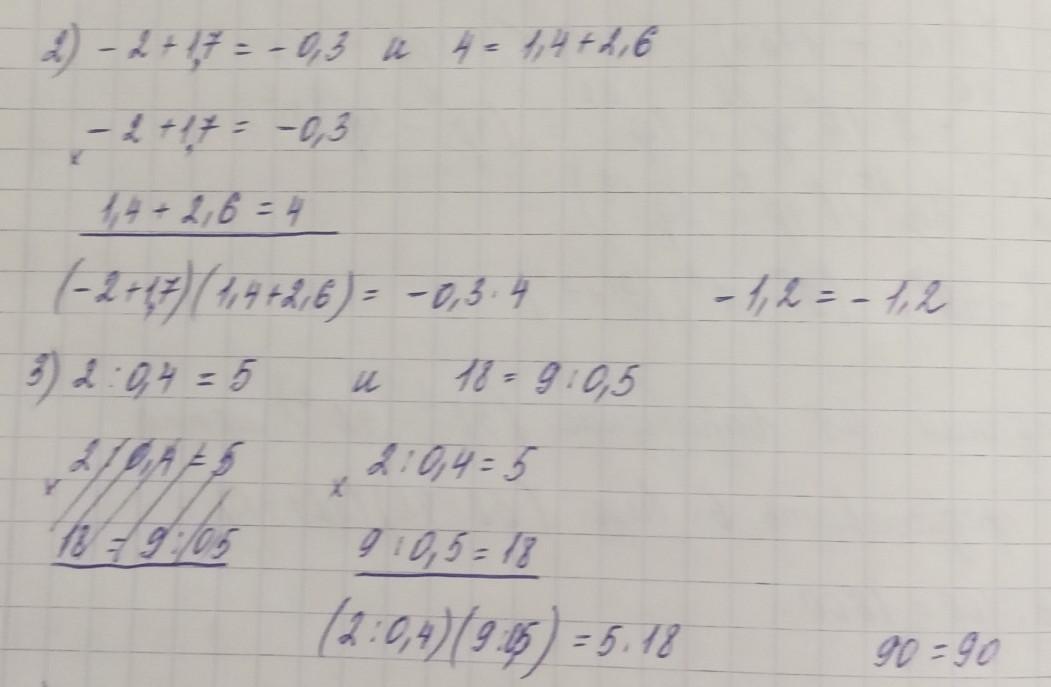 2) - 2 + 1,7 = - 0,3 и 4 = 1,4 + 2,6
- 2 + 1,7 = - 0,3
×
1,4 + 2,6 = 4
(-2+1,7)(1,4+2,6) = - 0,3 · 4 - 1,2 = - 1,2
3) 2 : 0,4 = 5 и 18 = 9 : 0,5
2 : 0,4 = 5 2 : 0,4 = 5
× ×
18 = 9 : 05 9 : 0,5 = 18
(2 : 0,4)(9 : 0,5) = 5 . 18 90 = 90